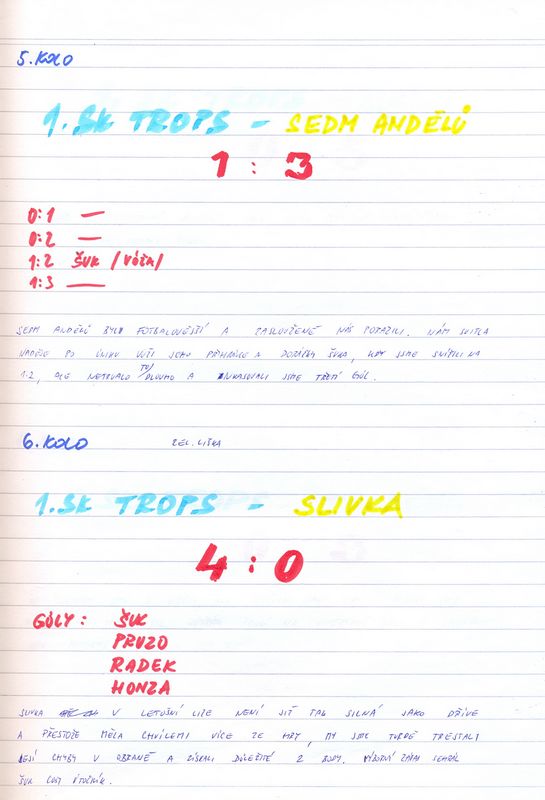 5. KOLO
1. SK TROPS - SEDM ANDĚLŮ
1 : 3
0:1 —
0:2 —
1:2 ŠUK /VÓŽA/
1:3 —
SEDM ANDĚLŮ BYLO FOTBALOVĚJŠÍ A ZASLOUŽENĚ NÁS PORAZILI. NÁM SVITLA
NADĚJE PO ÚNIKU VÓŽI JEHO PŘIHRÁVCE A DORÁŽKY ŠUKA, KDY JSME SNÍŽILI NA
1:2, ALE NETRVALO TO DLOUHO A INKASOVALI JSME TŘETÍ GÓL.
6. KOLO ZEL. LIŠKA
1. SK TROPS - SLIVKA
4 : 0
GÓLY: ŠUK
PRUZO
RADEK
HONZA
SLIVKA V LETOŠNÍ LIZE NENÍ JIŽ TAK SILNÁ JAKO DŘÍVE
A PŘESTOŽE MĚLA CHVÍLEMI VÍCE ZE HRY, MY JSME TVRDĚ TRESTALI
JEJÍ CHYBY V OBRANĚ A ZÍSKALI DŮLEŽITÉ 2 BODY. VÝBORNÝ ZÁPAS SEHRÁL
ŠUK COBY ÚTOČNÍK.